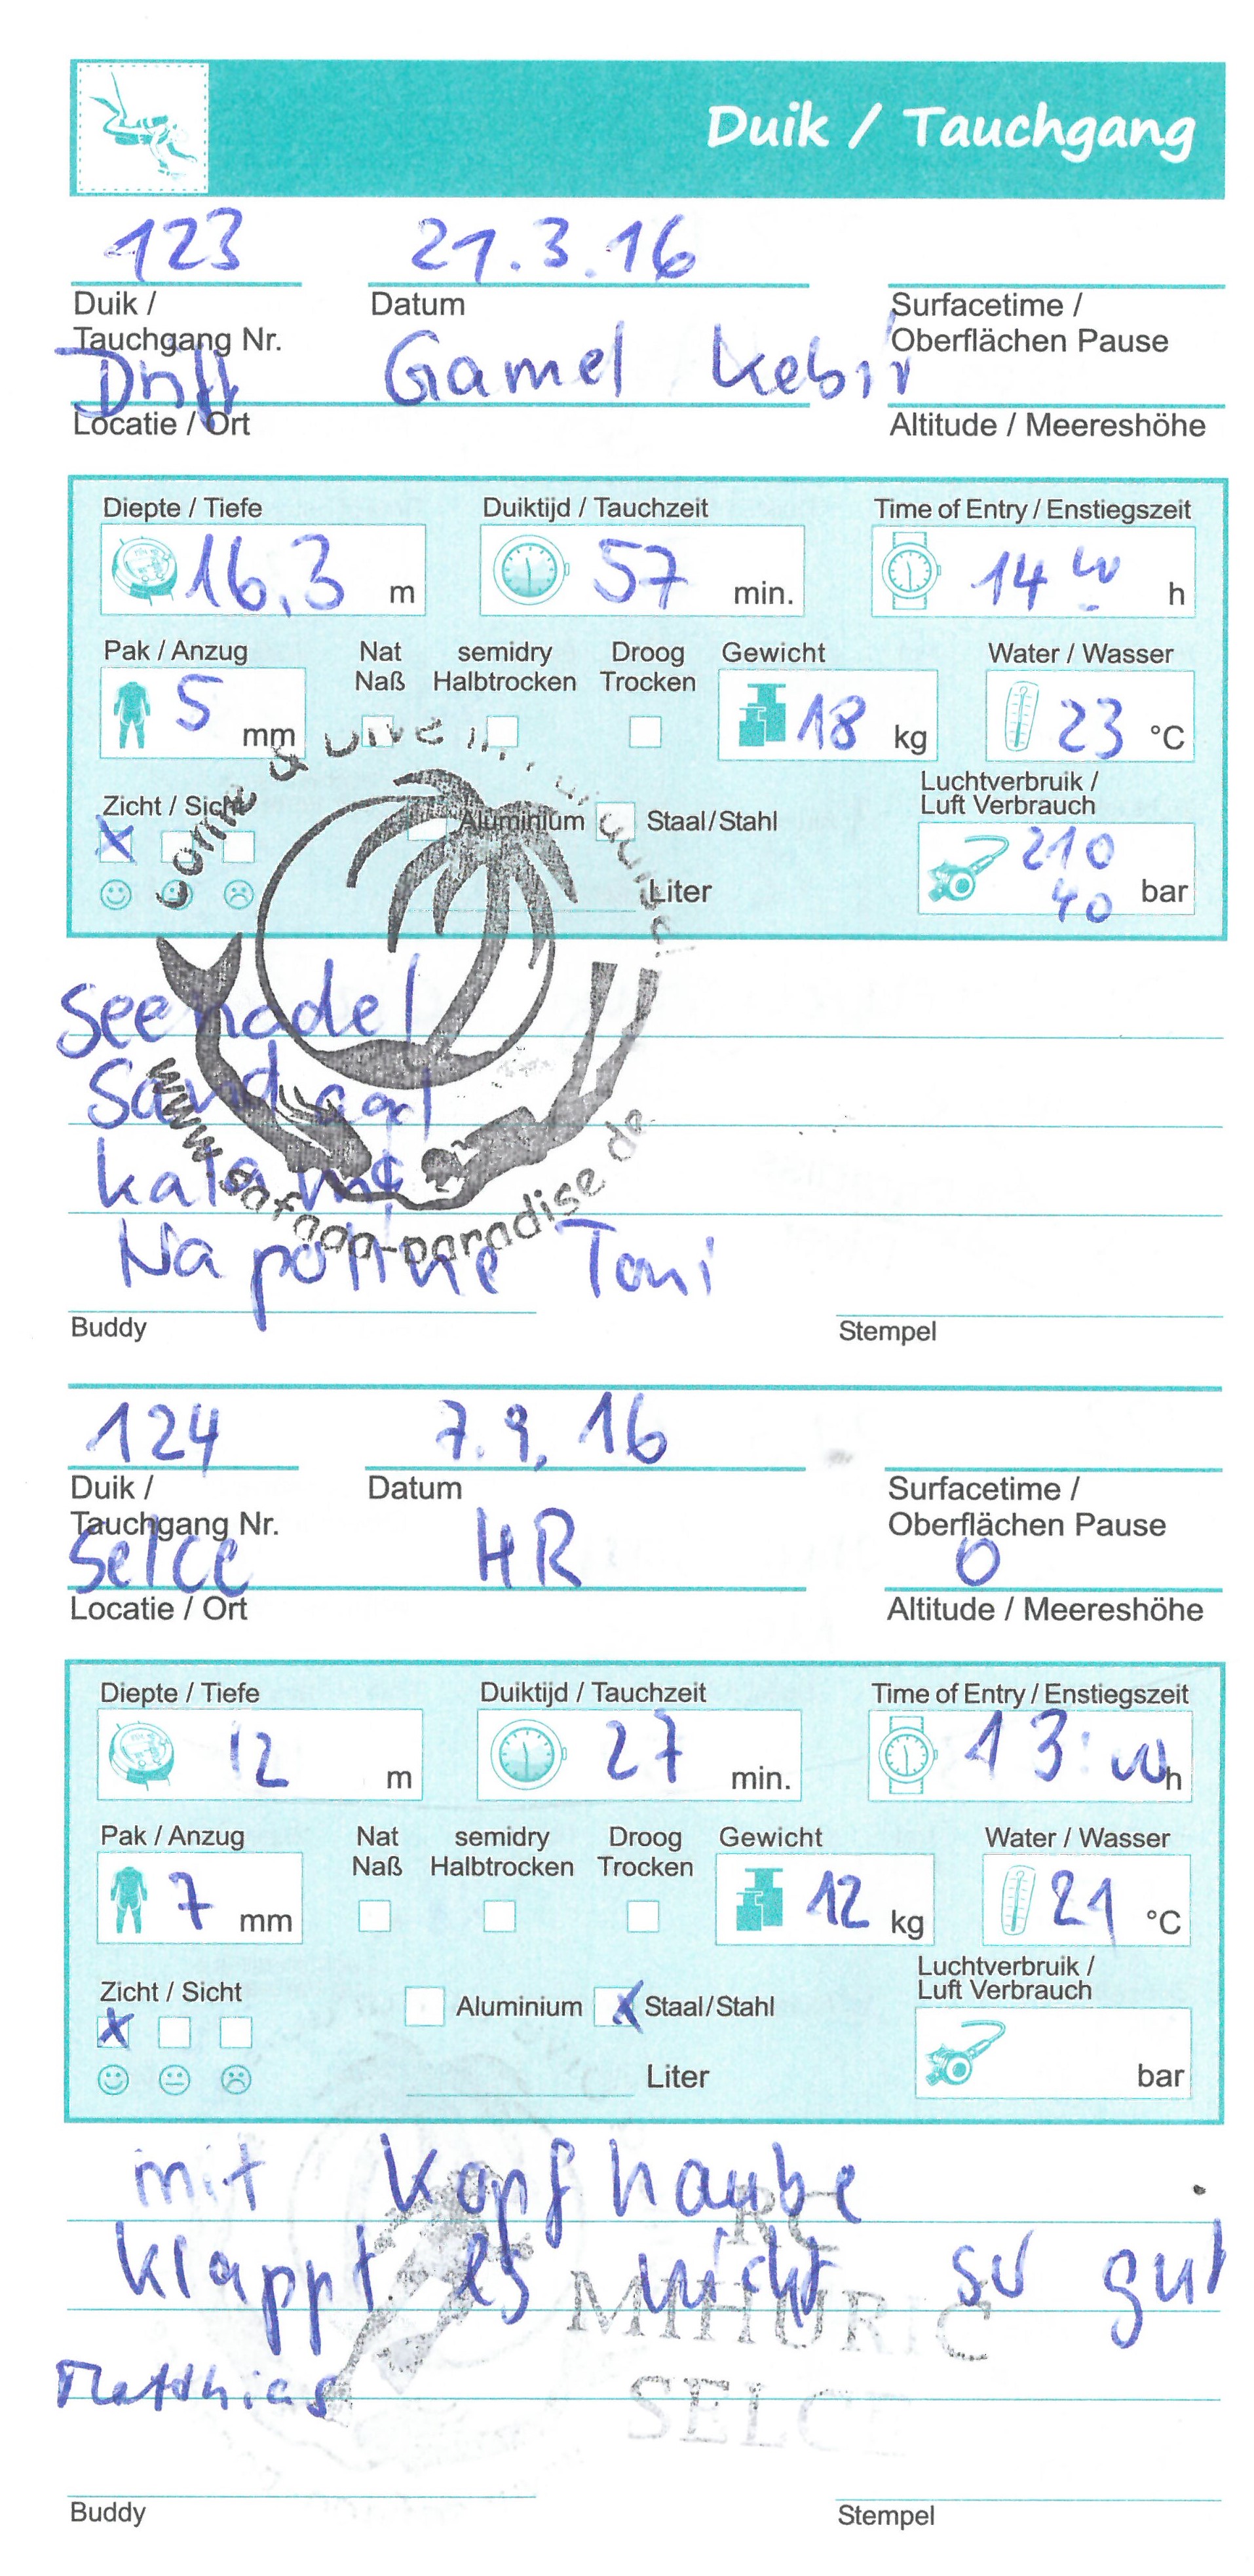 Duik / Tauchgang
123 21.3.16
Duik / Datum Surfacetime /
Tauchgang Nr. Oberflächen Pause
Drift Gamel Kebir
Locatie / Ort Altitude / Meereshöhe
Diepte / Tiefe Duiktijd / Tauchzeit Time of Entry / Enstiegszeit
16,3 m 57 min. 14 00 h
Pak / Anzug Nat semidry Droog Gewicht Water / Wasser
Naß Halbtrocken Trocken
5 mm 18 kg 23 °C
Zicht / Sicht Aluminium Staal/Stahl Luchtverbruik /
Luft Verbrauch
X 210
Liter 40 bar
come & dive in
Seenadel
Sandaal
www.safaga-paradise.de
Toni
Buddy Stempel
124 7.9.16
Duik / Datum Surfacetime /
Tauchgang Nr. Oberflächen Pause
Selce HR 0
Locatie / Ort Altitude / Meereshöhe
Diepte / Tiefe Duiktijd / Tauchzeit Time of Entry / Enstiegszeit
12 m 27 min. 13:00 h
Pak / Anzug Nat semidry Droog Gewicht Water / Wasser
Naß Halbtrocken Trocken
7 mm 12 kg 21 °C
Zicht / Sicht Luchtverbruik /
Luft Verbrauch
X Aluminium X Staal/Stahl
Liter bar
mit Kopfhaube
klappt es nicht so gut
Matthias
RC
MIHURIC
SELCE
Buddy Stempel